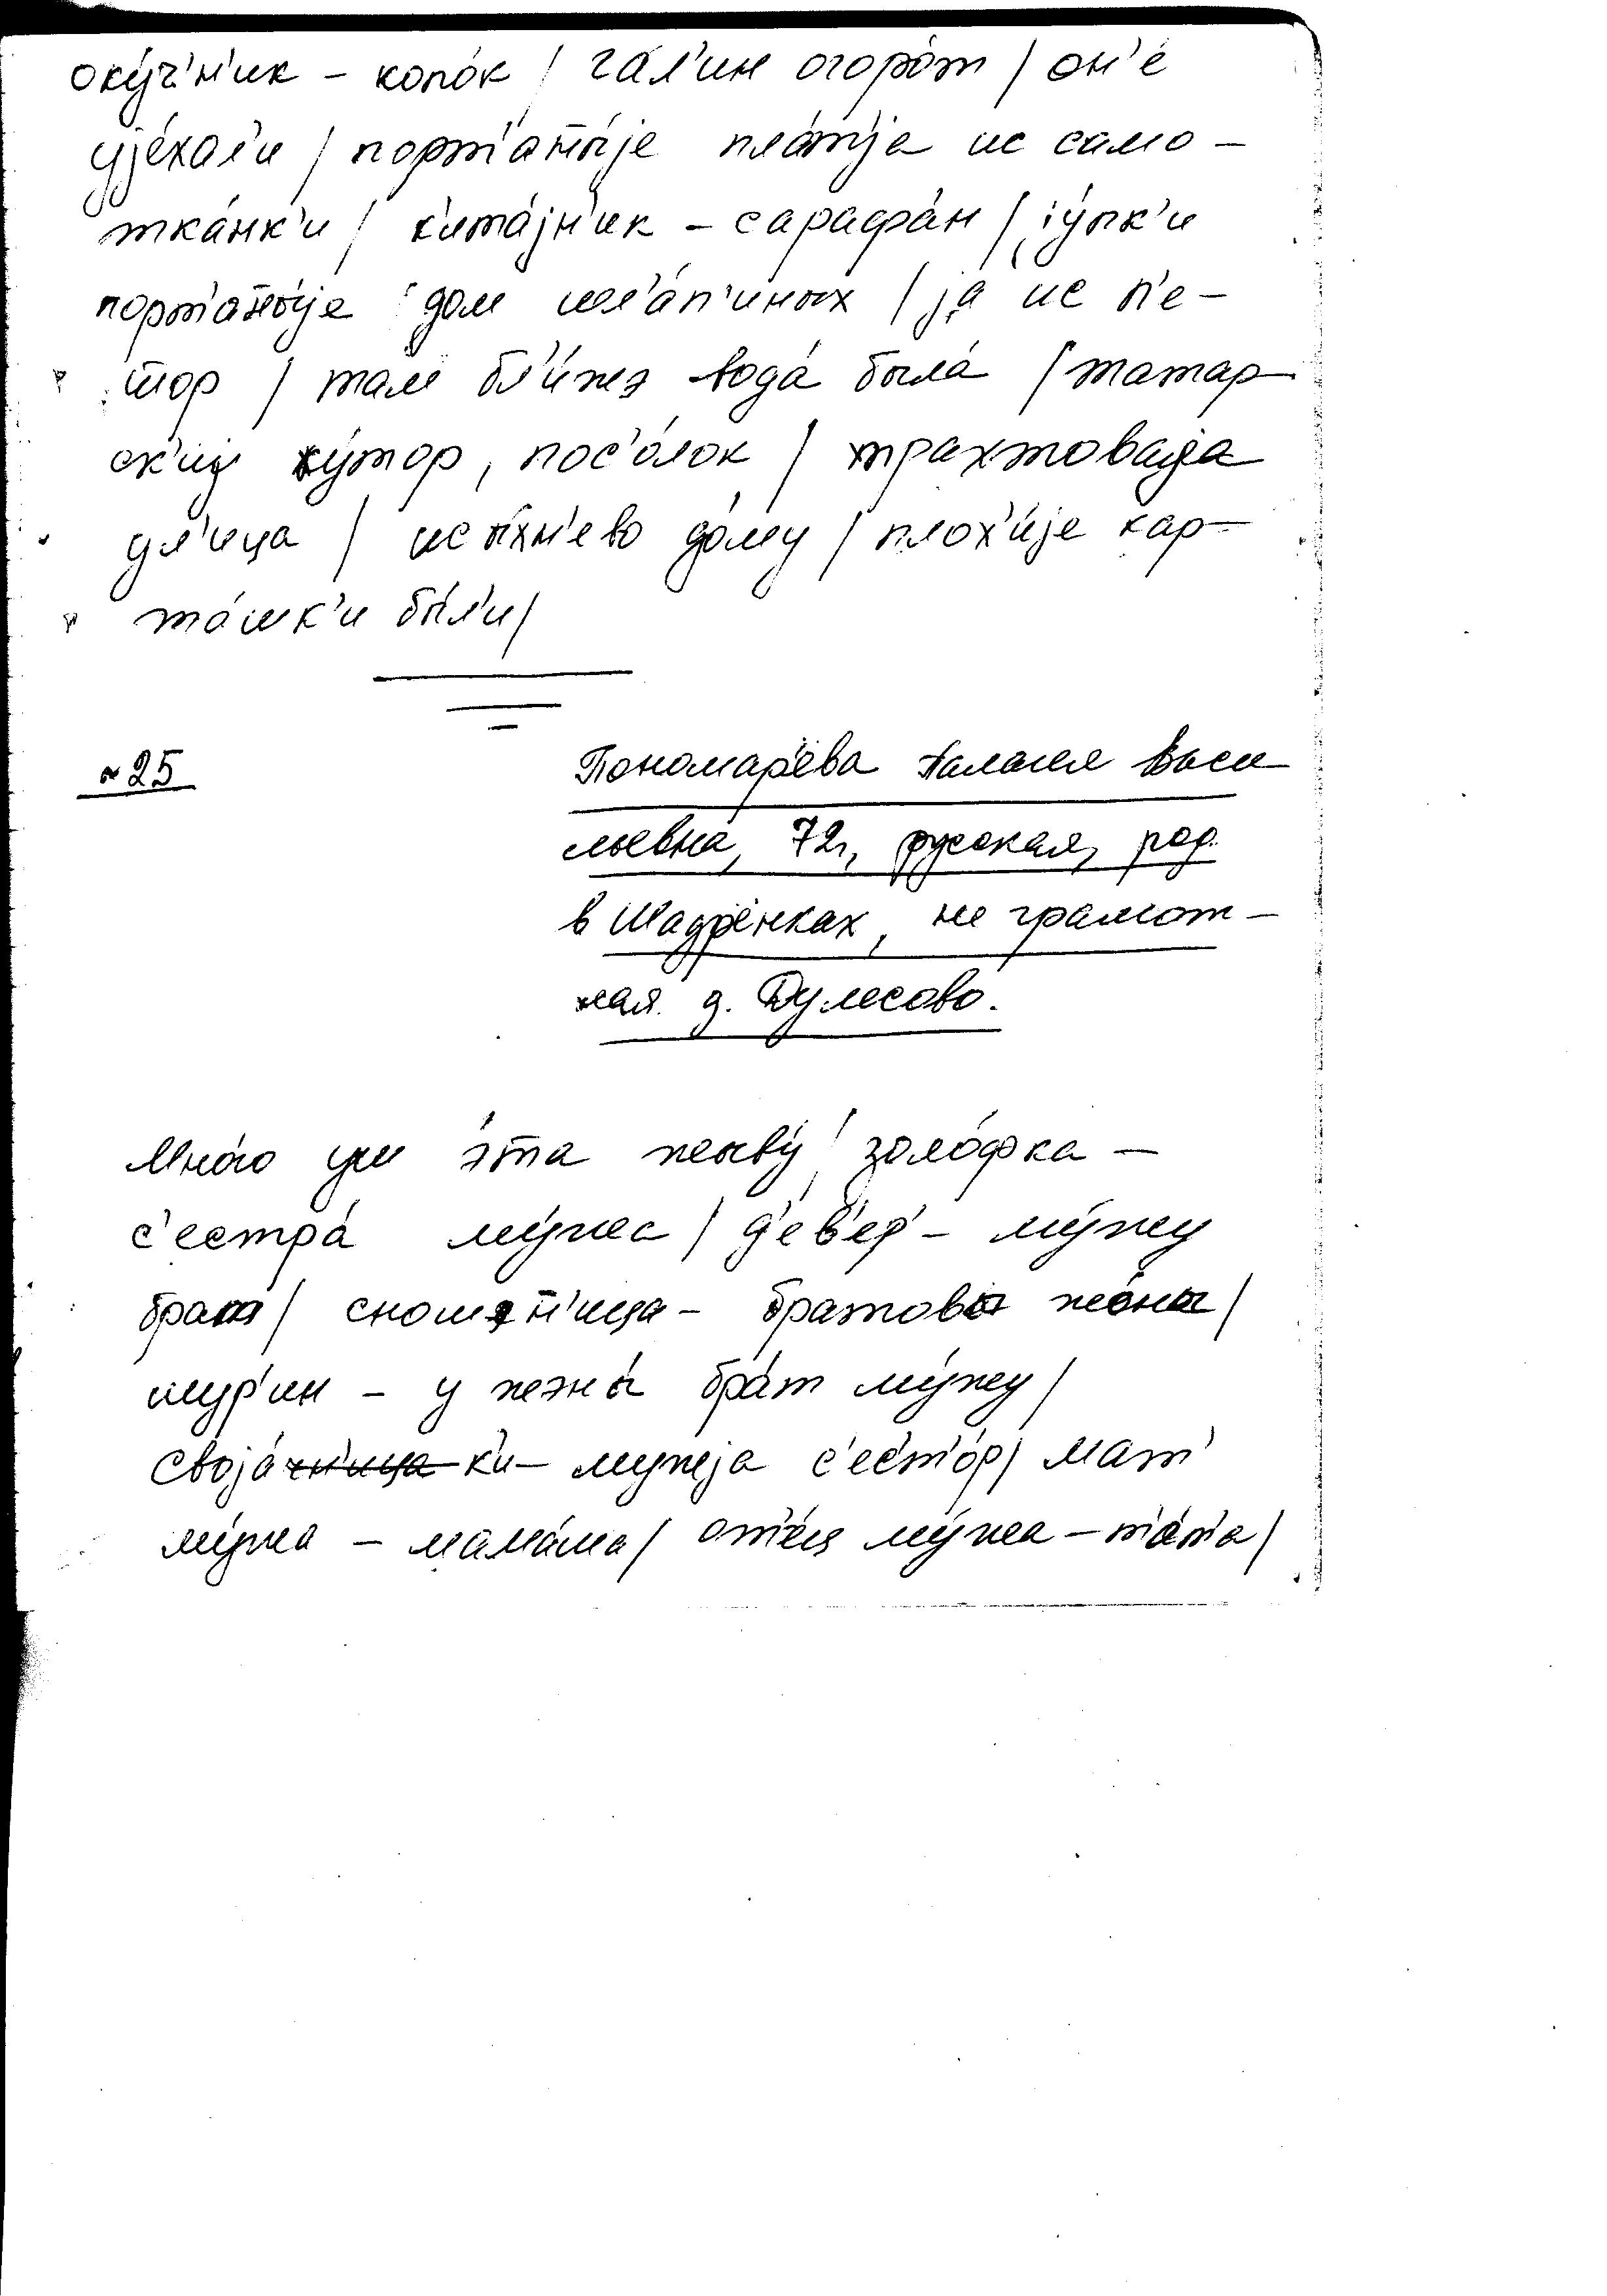 оку́ч'н'ик – копо́к / га́л'ин огоро́т / он'е́
ујéхал'и / порт'аны́је пла́т'ја ис само –
тка́нк'и / к'ита́јн'ик – сарафа́н / јýпк'и
порт'аны́је / дом шл'а́п'иных / ја ис п'е –
тор / там бл'и́жэ вода́ была́ / татар –
ск'иј ху́тор, пос'о́лок / трахтоваја
ул'ица / ис ы́хн'ево до́му / плох'и́је кар –
то́шк'и бы́л'и /
№ 25
Пономарёва Васи
льевна, 72 г, русская, род.
в Шадрёнках, не грамот –
ная. д. Дулесово.
Мно́го уш э́та жывý / золо́фка –
с'естра́ мýжа / д'е́в'ер' – мýжу
брат / сношэн'ица – братовы жо́ны /
шур'ин – у жэны́ бра́т мýжу /
својá к'и – мужја́ с'ест'о́р / мат'
мýжа – мама́ма / от'е́ц мýжа – т'а́т'а /